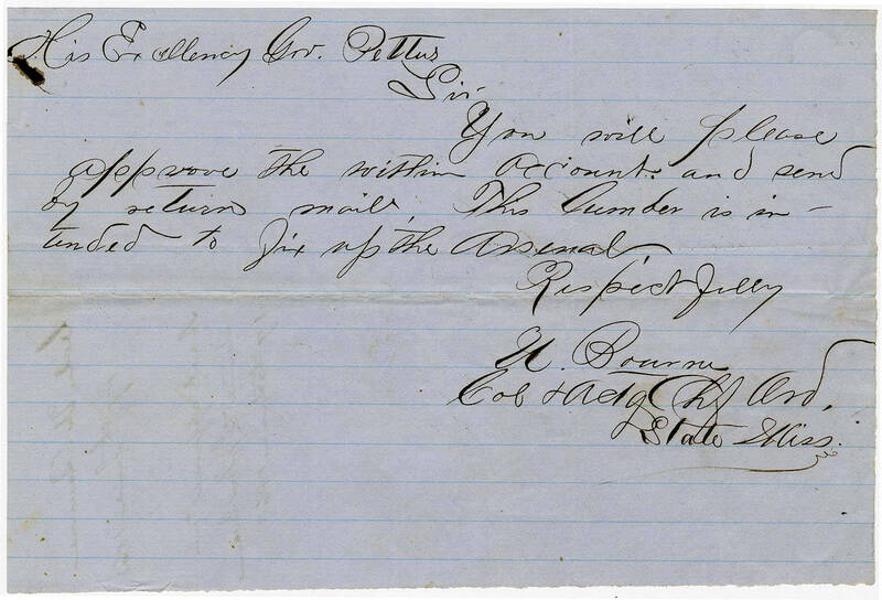 His Excellency Gov. Pettus
Sir
You will please
approve the within account. and send
by return mail, This Lumber is in-
tended to fix up the Arsenal,
Respectfully
U. Bourne
Col & Actg Chf Ord,
State Miss.